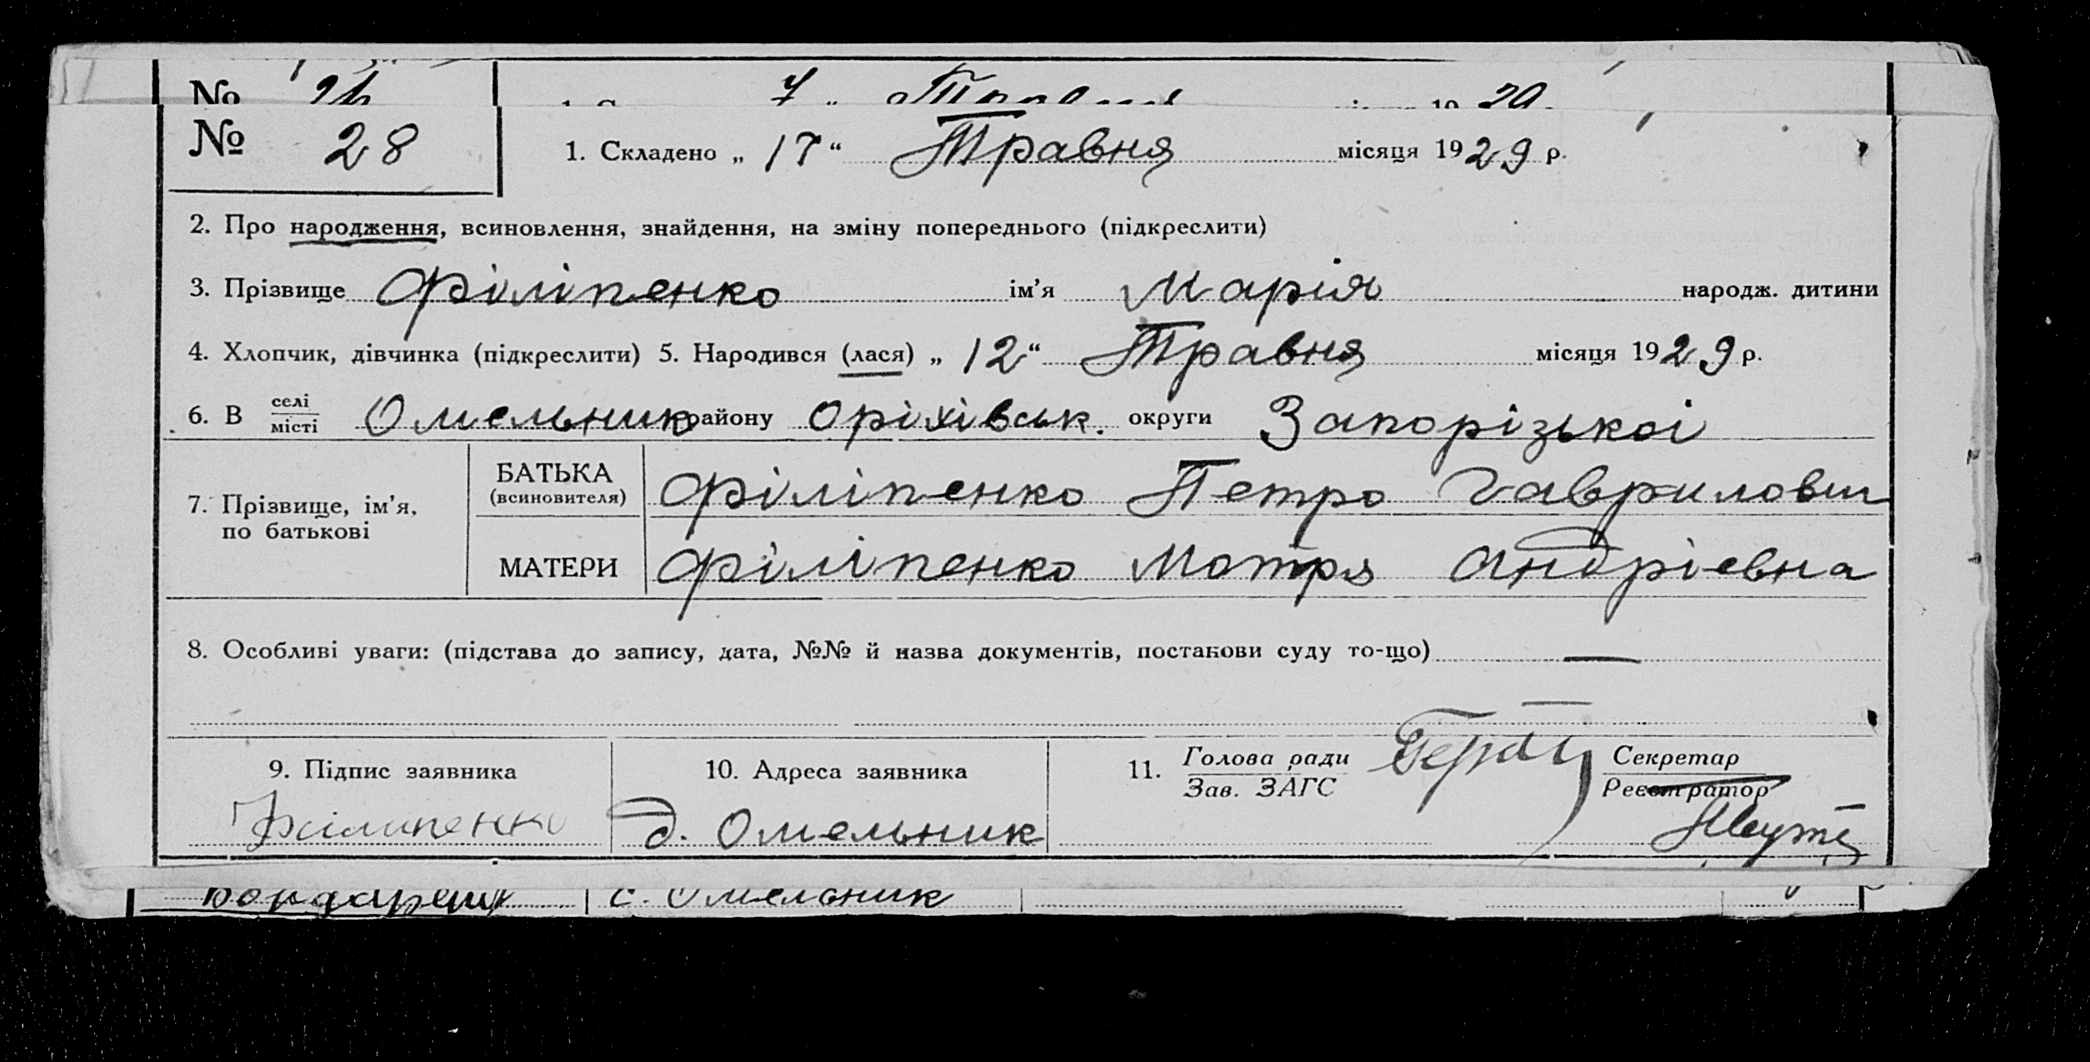 № 28 1. Складено „ 17 “ Травня місяця 1929 р.
2. Про народження, всиновлення, знайдення, на зміну попереднього (підкреслити)
3. Прізвище Філіпенко ім'я Марія народж. дитини
4. Хлопчик, дівчинка (підкреслити) 5. Народився (лася) „ 12 “ Травня місяця 1929 р.
6. В селі місті Омельник району Оріхівськ. округи Запорізькоі
7. Прізвище, ім'я, по батькові
БАТЬКА (всиновителя) Філіпенко Петро Гаврилович
МАТЕРИ Філіпенко Мотря Андрієвна
8. Особливі уваги: (підстава до запису, дата, №№ й назва документів, постанови суду то-що) —
9. Підпис заявника 10. Адреса заявника 11. Голова ради Зав. ЗАГС Секретар Реєстратор
Філипенко д. Омельник
с. Омельник